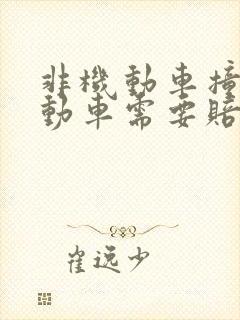 非機動車撞
動車需要賠
崔逸少